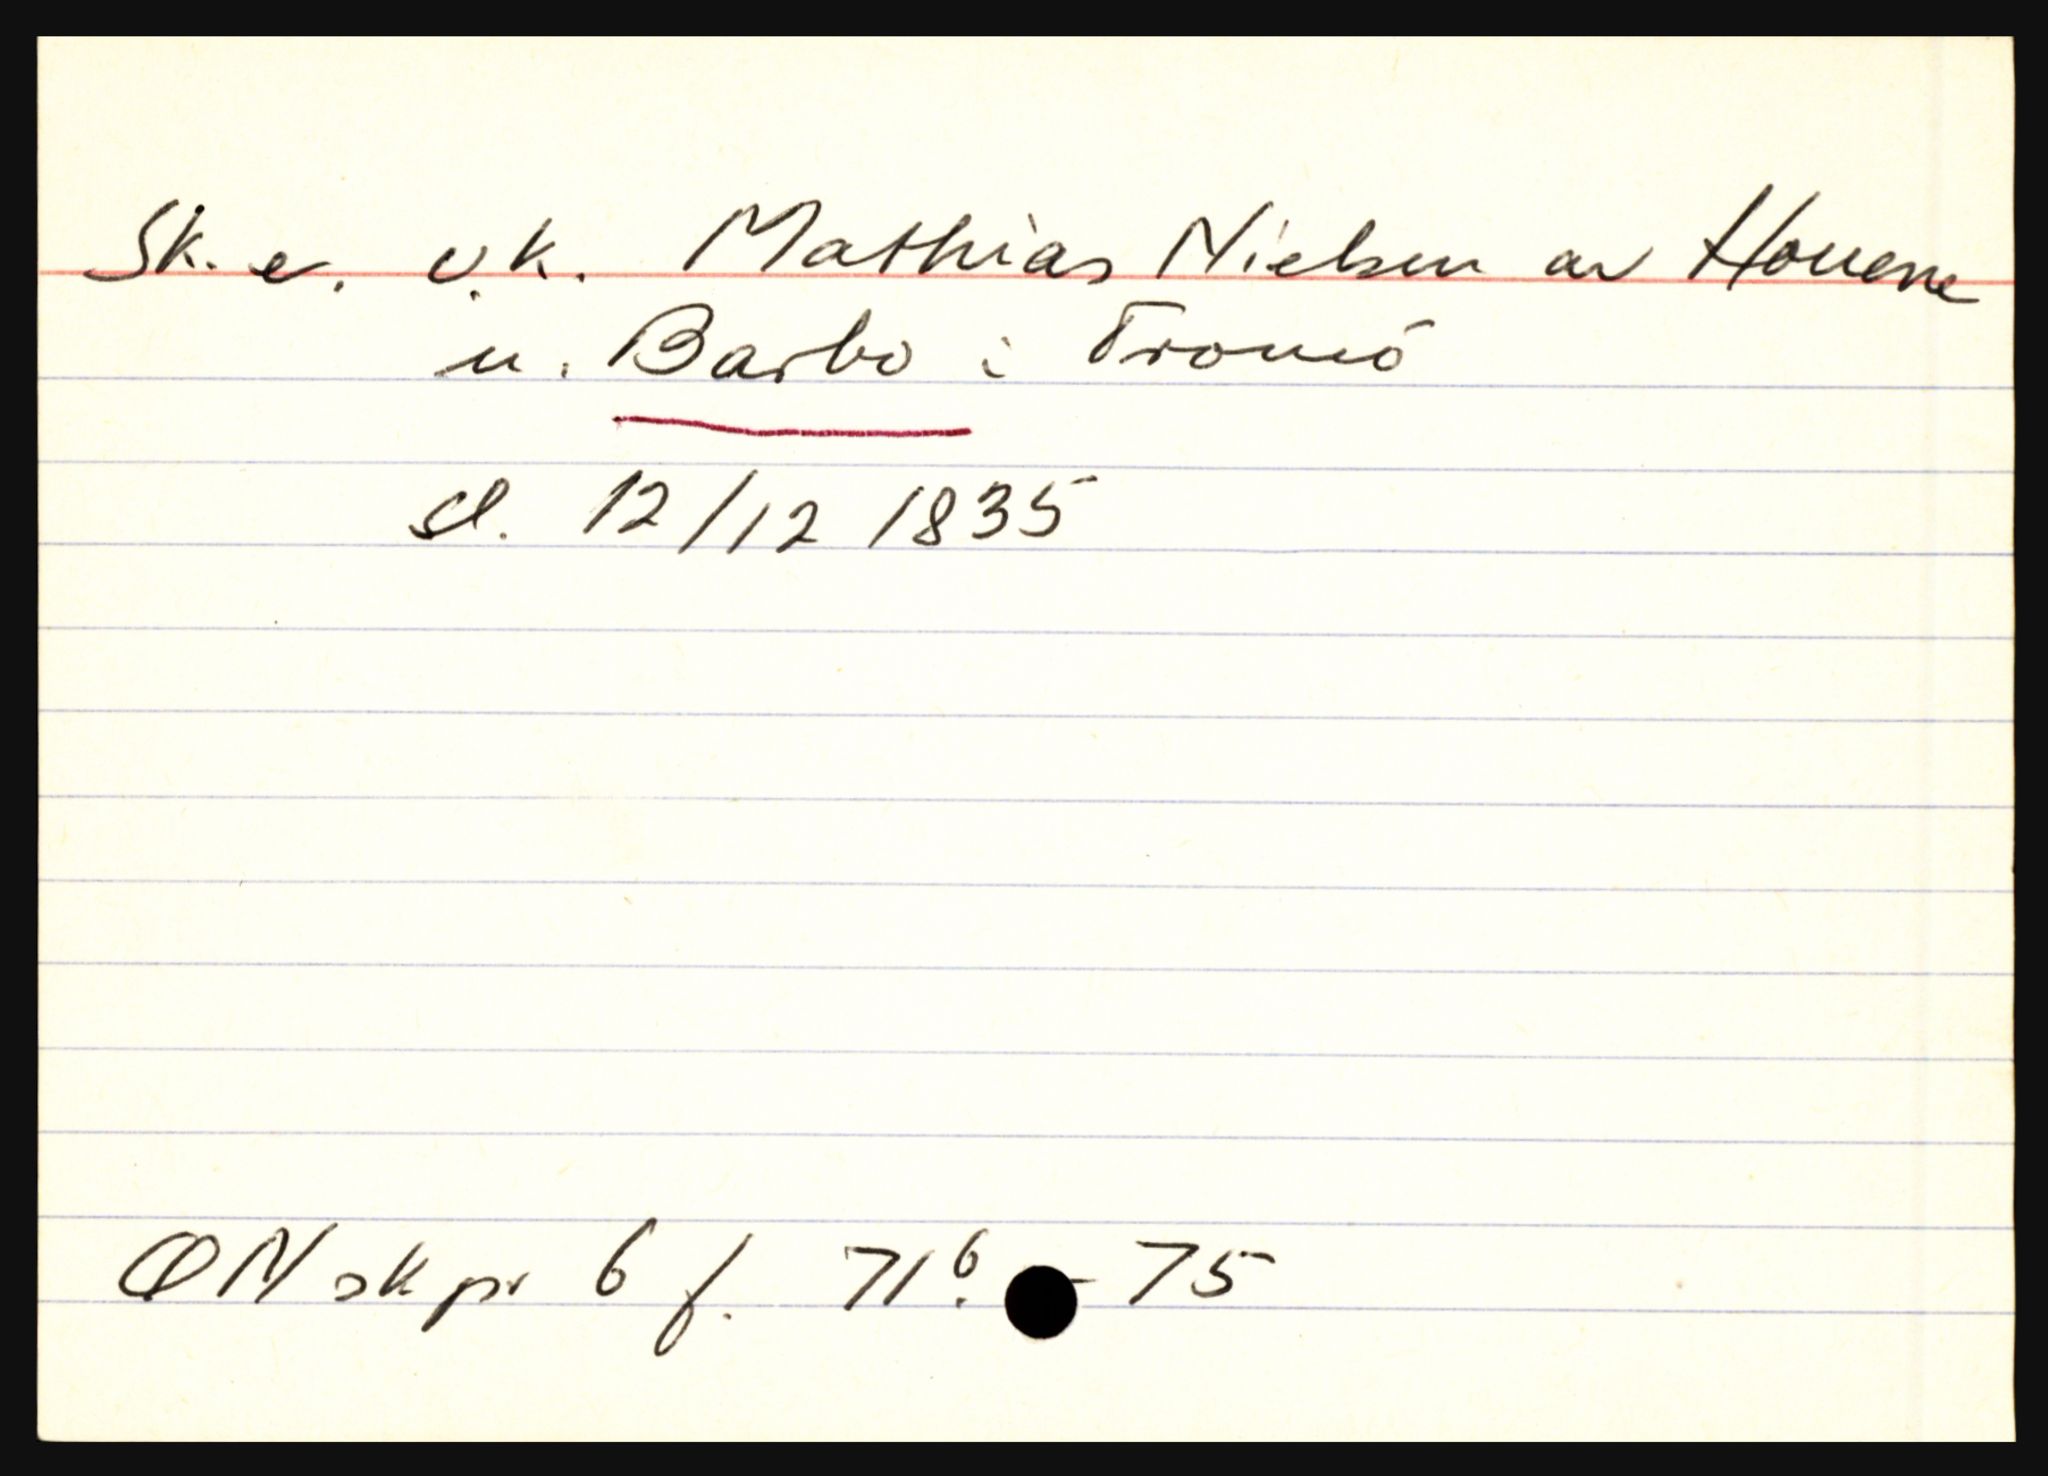 Sk. e. v.k. Mathias Nielsen av Houene
u. Barbo i Tromö
sl. 12/12 1835
ØN skpr 6 f. 71b. - 75